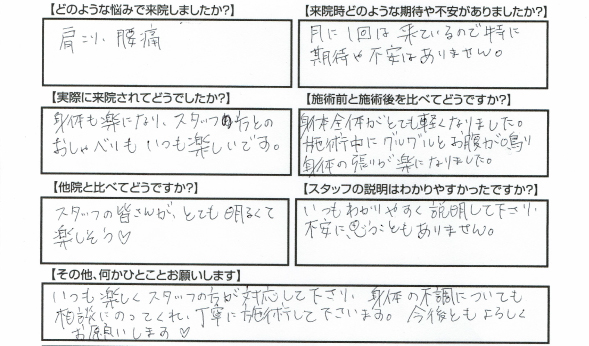 【どのような悩みで来院しましたか?】
肩こり、腰痛
【来院時どのような期待や不安がありましたか?】
月に1回は来ているので特に
期待や不安はありません。
【実際に来院されてどうでしたか?】
身体も楽になり、スタッフの方との
おしゃべりもいつも楽しいです。
【施術前と施術後を比べてどうですか?】
身体全体がとても軽くなりました。
施術中にグルグルとお腹が鳴り
身体の張りが楽になりました。
【他院と比べてどうですか?】
スタッフの皆さんが、とても明るくて
楽しそう♡
【スタッフの説明はわかりやすかったですか?】
いつもわかりやすく説明して下さり、
不安に思うこともありません。
【その他、何かひとことお願いします】
いつも楽しくスタッフの方が対応して下さり、身体の不調についても
相談にのってくれ、丁寧に施術して下さいます。今後ともよろしく
お願いします♡